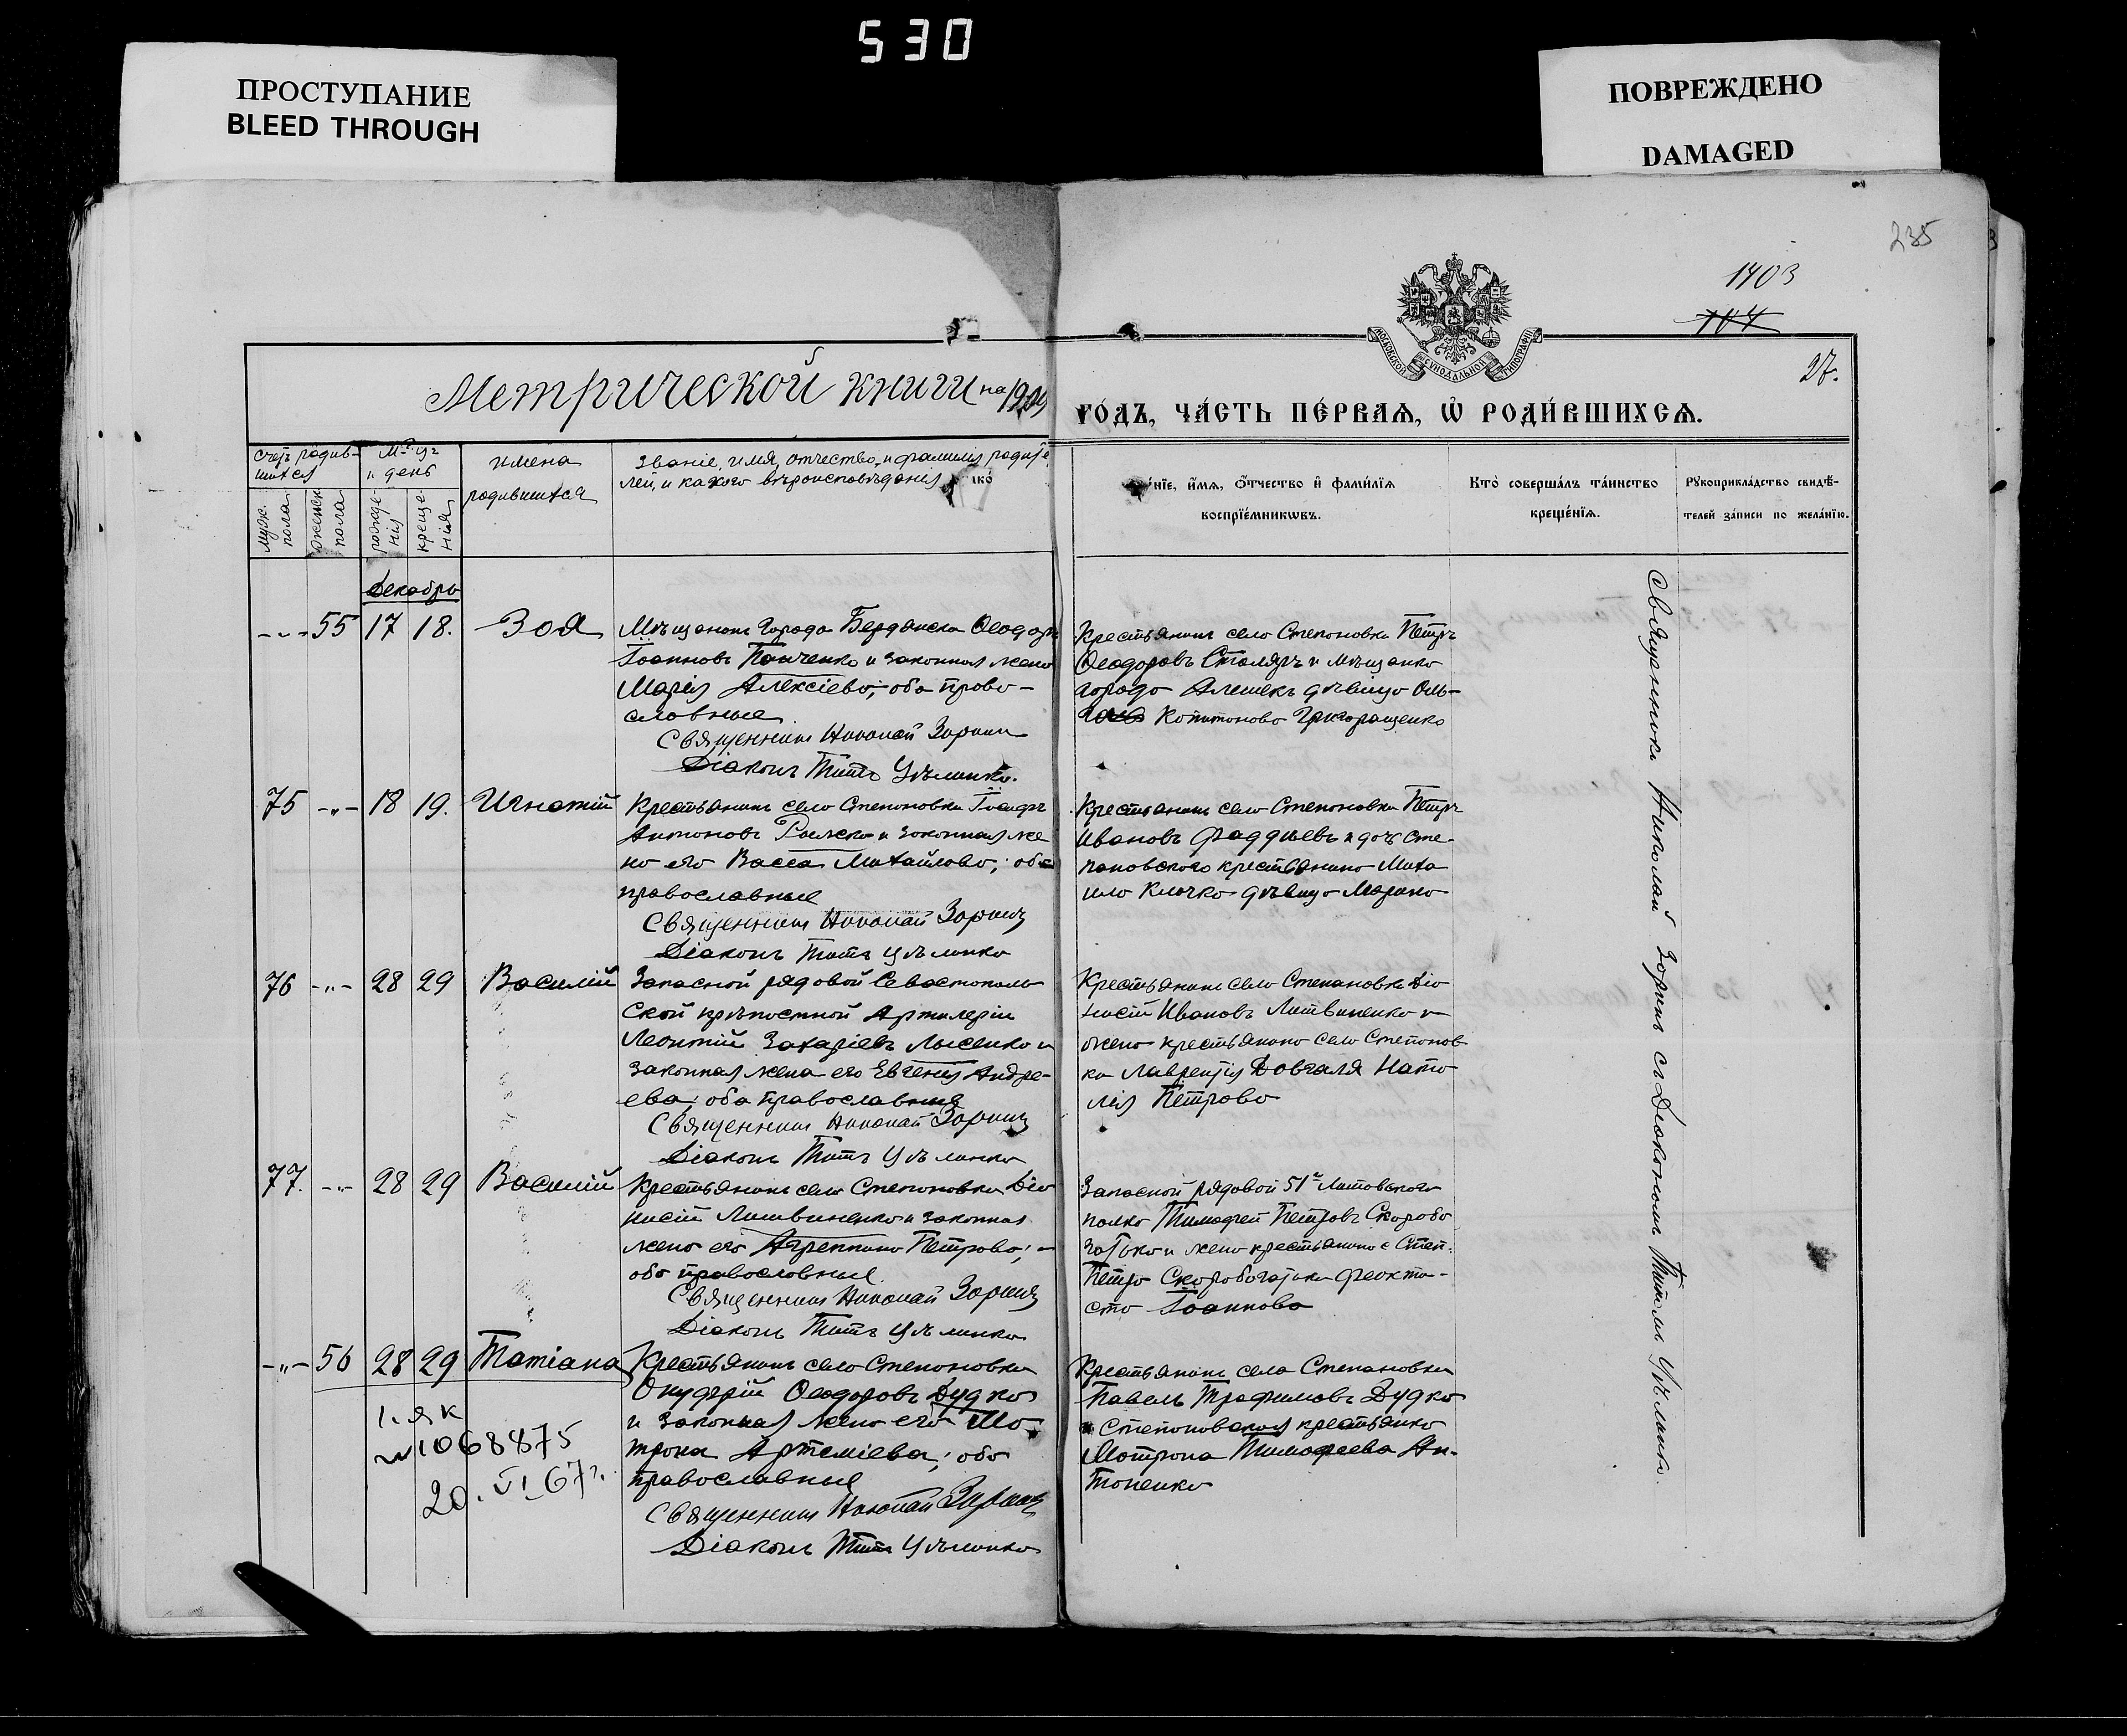 530
ПРОСТУПАНИЕ
BLEED THROUGH
ПОВРЕЖДЕНО
DAMAGED
235
1403
27.
МОСКОВСКОЙ СѴНОДАЛЬНОЙ ТИПОГРАФІИ
Метрической книги на 1909
го́дъ, ча́сть пе́рваѧ, ѡ҆ роди́вшихсѧ.
Счетъ родив-
шихся
М-цъ
и день
имена
родившихся
Званіе, имя, отчество, и фамилія родите
лей, и какого вѣроисповѣданія
муж.
пола
женск
пола
рожде-
нія
креще-
нія
ніе, и҆́мѧ, ѻ҆́тчество и҆ фами́лїѧ
воспрїе́мникѡвъ.
Кто̀ соверша́лъ та́инство
креще́нїѧ.
Рꙋкоприкла́дство свидѣ́-
телей за́писи по жела́нїю.
Декабрь
-"- 55 17 18. Зоя
Мѣщанинъ города Бердянска Ѳеодоръ
Іоанновъ Панченко и законная жена
Марія Алексіева; оба право-
славные
Священникъ Николай Зоринъ
Діаконъ Титъ Цѣлинко.
Крестьянинъ села Степановки Петръ
Ѳеодоровъ Столяръ и мѣщанка
города Алешекъ дѣвица Оль-
га Капитонова Григоращенко
75 -"- 18 19. Игнатій
Крестьянинъ села Степановки Іосифъ
Антоновъ и законная же
на его Васса Михайлова; оба
православные
Священникъ Николай Зоринъ
Діаконъ Титъ Цѣлинко
Крестьянинъ села Степановки Петръ
Ивановъ Фаддѣевъ и дочь Сте-
пановского крестьянина Миха
ила Клочко дѣвица Марина
76 -"- 28 29 Василій
Запасной рядовой Севастополь
ской крѣпостной Артилеріи
Леонтій Захаріевъ Лысенко и
законная жена его Евгенія Андре-
ева; оба православные
Священникъ Николай Зоринъ
Діаконъ Титъ Цѣлинко
Крестьянинъ села Степановки Діо
нисій Ивановъ Литвиненко и
жена крестьянина села Степанов
ки Лаврентія Довгаля Ната
лія Петрова
77. -"- 28 29 Василій
Крестьянинъ села Степановки Діо
нисій Литвиненко и законная
жена его Агрепина Петрова; -
оба православные.
Священникъ Николай Зоринъ
Діаконъ Титъ Цѣлинко
Запасной рядовой 51го Литовского
полка Тимофей Петровъ Скоробо
гатько и жена крестьянина с Степ.
Петра Скоробогатька Феокти-
ста Іоаннова
-"- 56 28 29 Татіана
Крестьянинъ села Степановки
Онуфрій Ѳеодоровъ Дудко
и законная жена его Мо
трона Артеміева; оба
православные
Священникъ Николай Зоринъ
Діаконъ Титъ Цѣлинко
Крестьянинъ села Степановки
Павелъ Трофимовъ Дудко
и Степановская крестьянка
Мотрона Тимофеева Ан-
тоненко
I. ЯК
№ 1068875
20. VI 67 г.
Священникъ Николай Зоринъ съ Діакономъ Титомъ Цѣлинко.